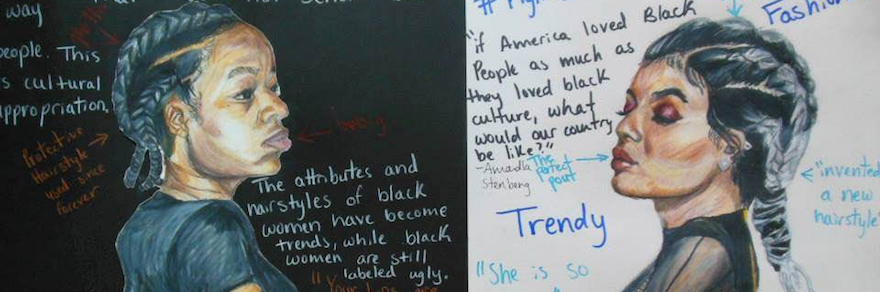 way
people. This
s cultural
appropriation.
Protective
Hairstyle
used since
forever
The attributes and
hairstyles of black
women have become
trends, while black
women are still
labeled ugly.
"Your lips are
#
Fashion
"if America loved Black
People as much as
they loved black
culture, what
would our country
be like?"
-Amandla
Stenberg
The
perfect
pout
Trendy
"She is so
"invented
a new
hairstyle"